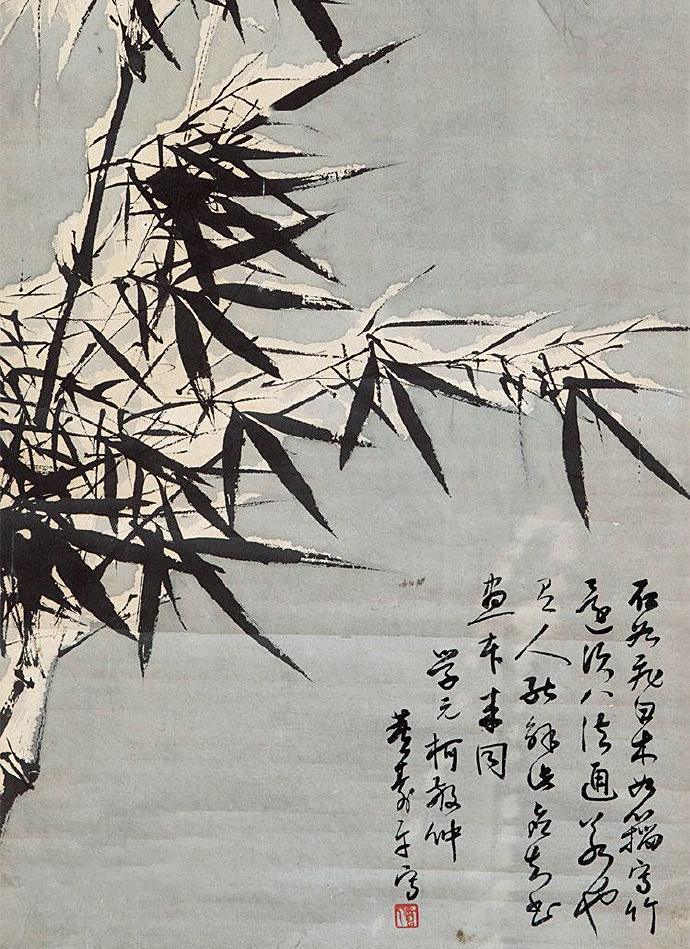 石如飛白木如籀寫竹
還須八法通若也
有人能解此知书
畫本來同
学元柯敬仲
董壽平寫